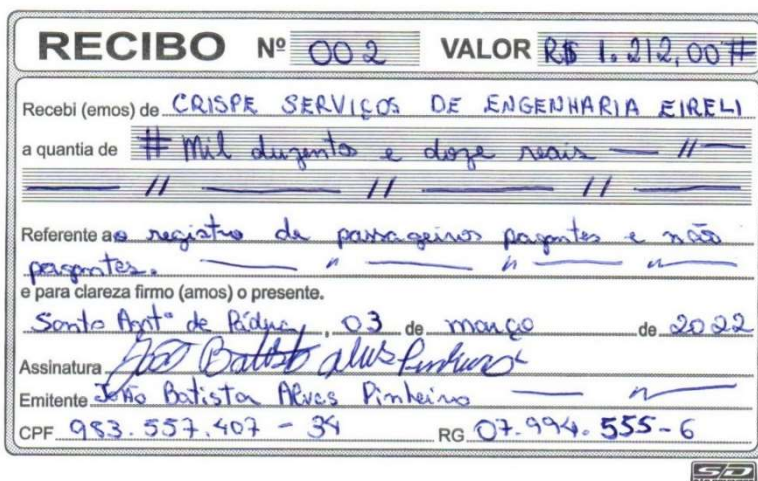 RECIBO Nº 002 VALOR R$ 1.212,00#
Recebi (emos) de CRISPE SERVIÇOS DE ENGENHARIA EIRELI
a quantia de # Mil duzentos e doze reais — // —
— // — // — // —
Referente ao registro de passageiros pagantes e não
pagantes. — // — // — // —
e para clareza firmo (amos) o presente.
Santo Antº de Pádua, 03 de março de 2022
Assinatura João Batista Alves Pinheiro
Emitente João Batista Alves Pinheiro — // —
CPF 983.557.407 - 34 RG 07.994.555-6
SD